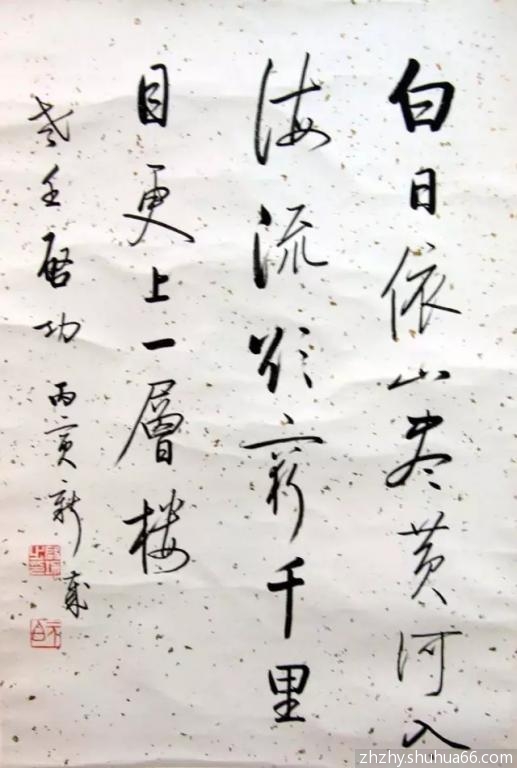 白日依山尽黄河入
海流欲穷千里
目更上一層楼
启功 丙寅新歲
zhzhy.shuhua66.com